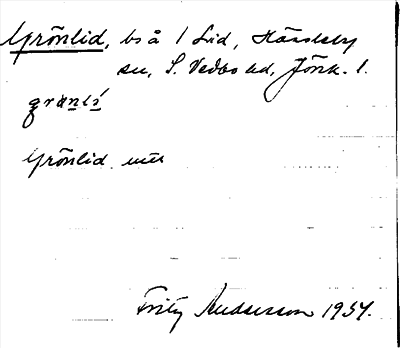 Grönlid, bs å 1 Lid, Hässleby
sn, S. Vedbo hd, Jönk. l.
grönli
Grönlid mtl
Fritz Andersson 1934.